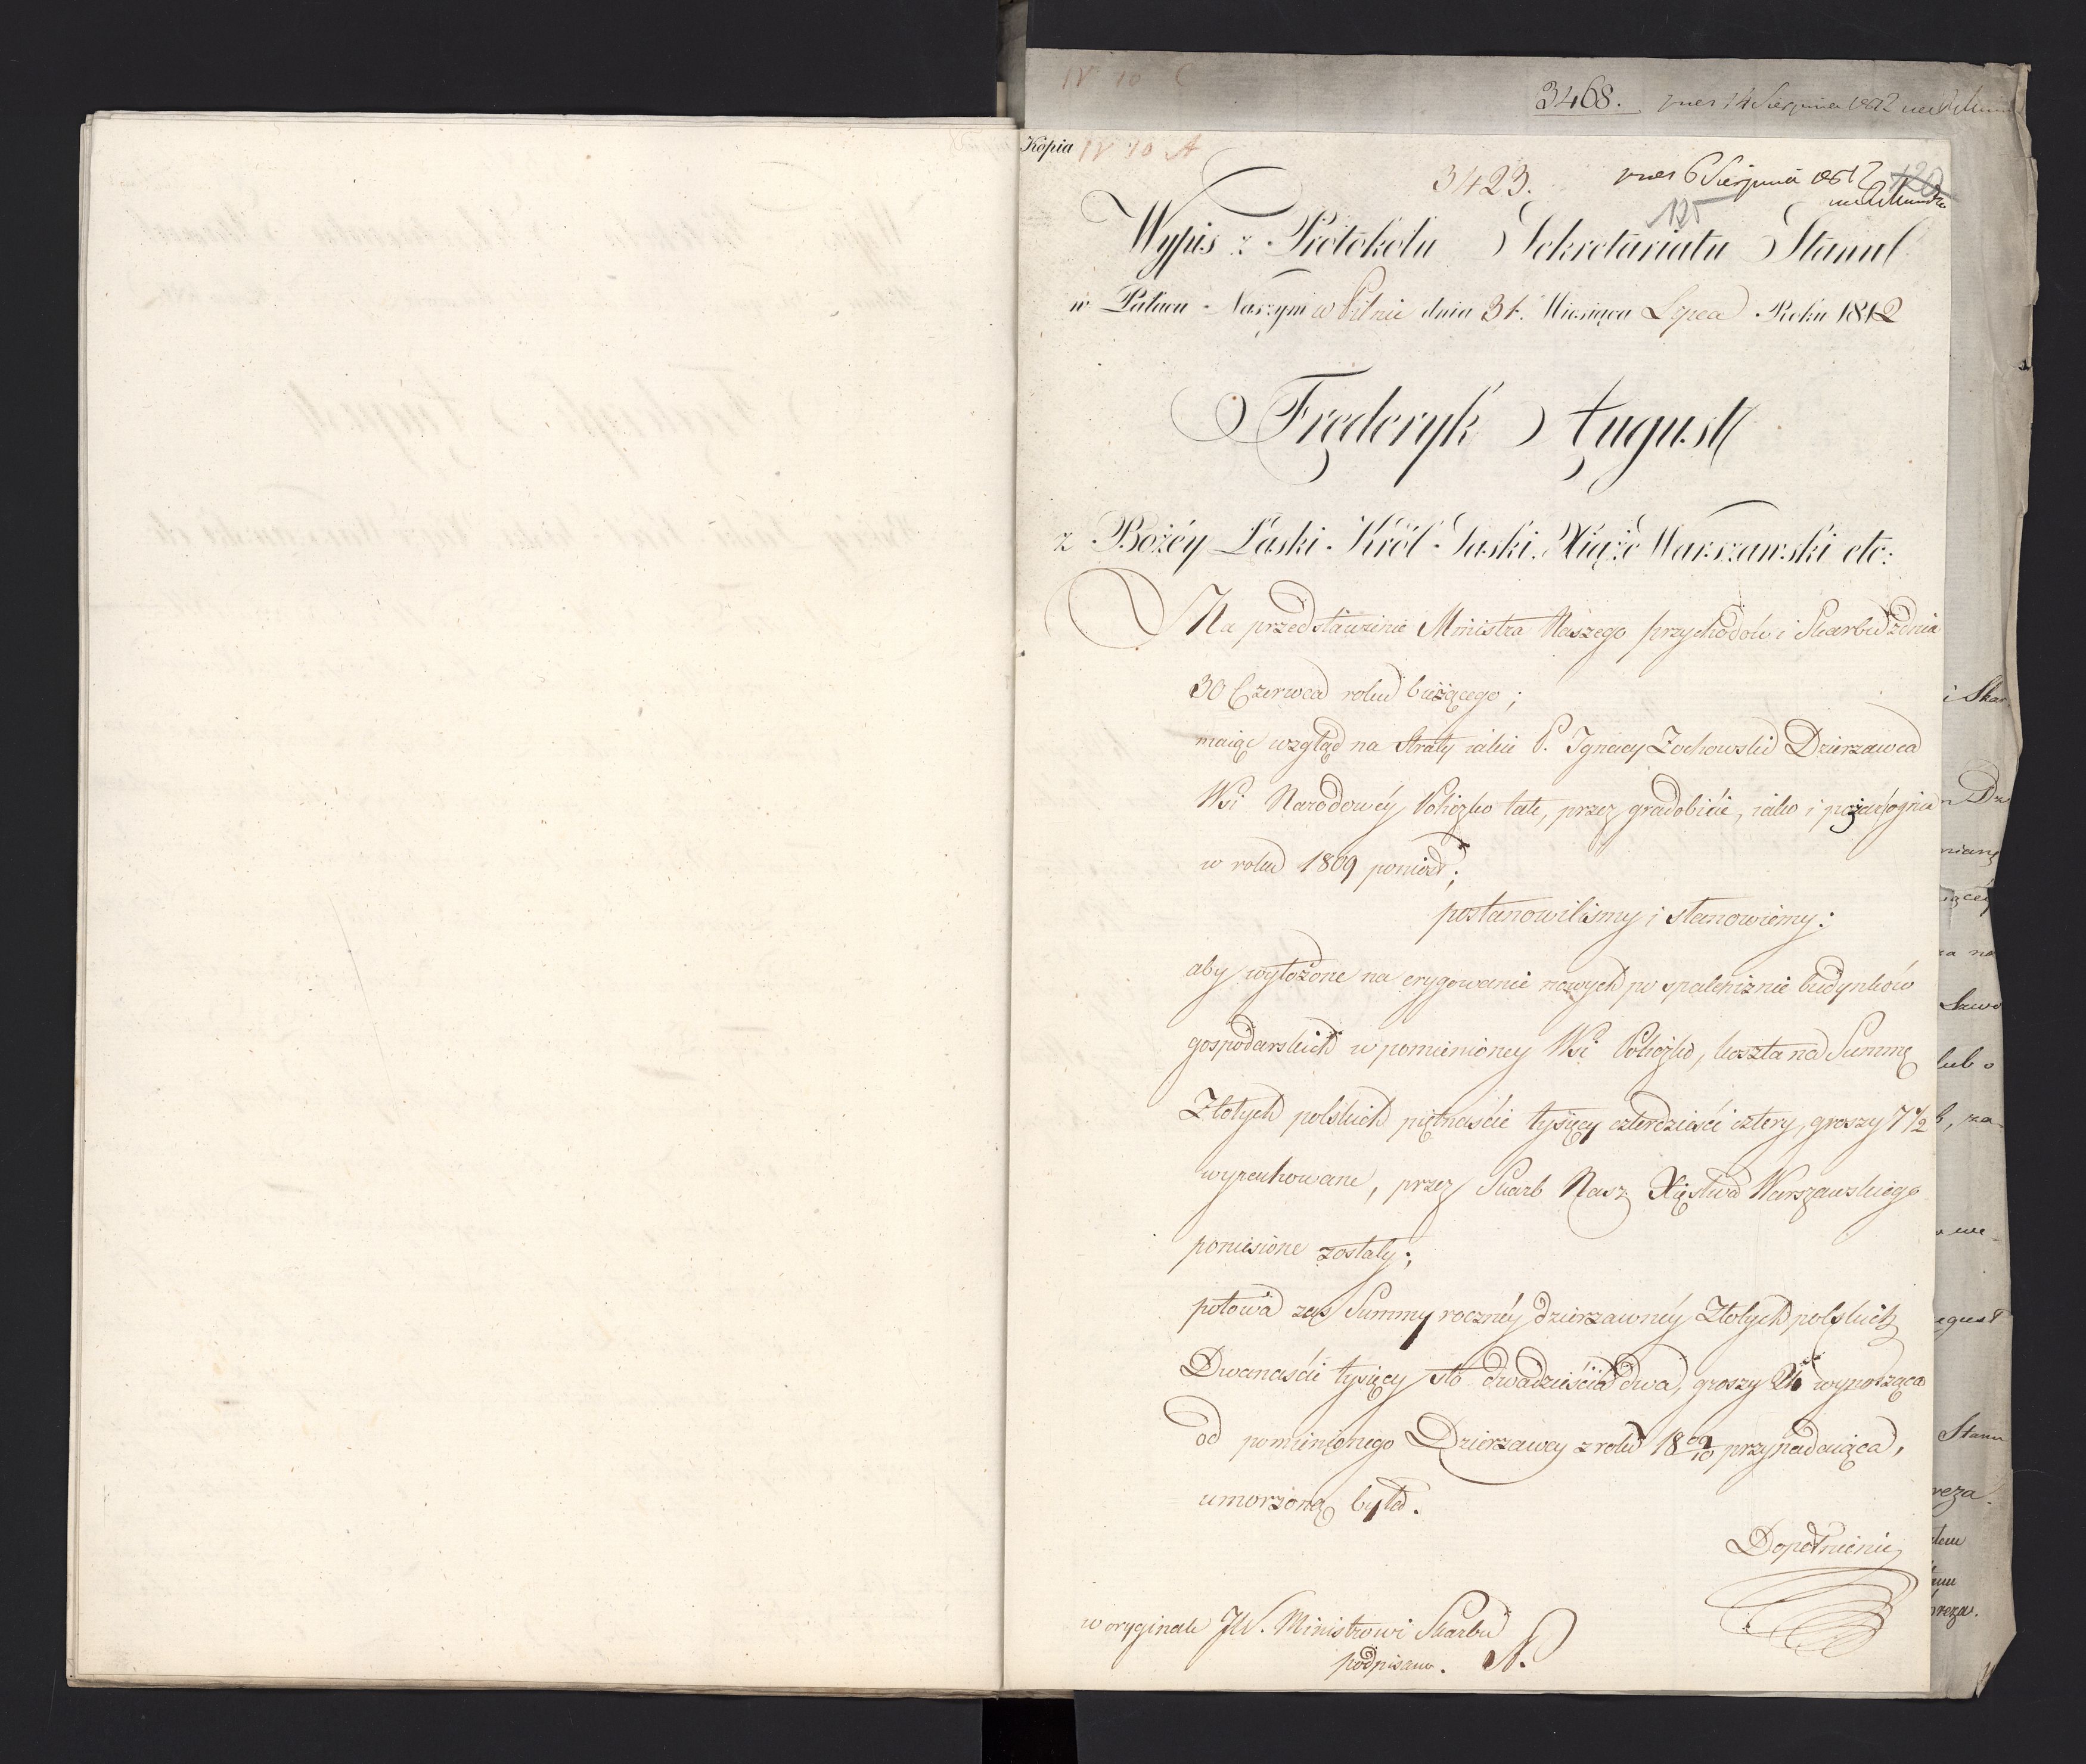 IV 10 C
3468. wnies 14 Sierpnia 1812
Kopia IV 10 A
3423. wnies 6 Sierpnia 1812 120
125
Wypis z Protokółu Sekretariatu Stanu
w Pałacu Naszym w Pilnie dnia 31. Miesiąca Lipca Roku 1812
Fryderyk August
z Bożéy Łaski Król Saski, Xiąże Warszawski etc:
Na przedstawienie Ministra Naszego przychodów i Skarbu z dnia
30 Czerwca roku bieżącego;
maiąc wzgląd na straty iakie P. Ignacy Zochowski Dzierzawca
Wsi Narodowéy Policzko tak, przez gradobicie, iako i pożar ognia
w roku 1809 poniósł;
postanowiliśmy i stanowiemy:
aby wyłożone na erygowanie nowych po spaleniznie budynków
gospodarskich w pomienioney Wsi Policzko, koszta na Summę
Złotych polskich piętnaście tysięcy czterdzieści cztery, groszy 7 1/2
wyrachowane, przez Skarb Nasz Xięstwa Warszawskiego
poniesione zostały;
połowa zaś Summy rocznéy dzierzawnéy Złotych polskich
Dwanaście tysięcy sto dwadzieścia dwa, groszy 26 wynosząca
od pomienionego Dzierzawcy z roku 1809/10 przypadaiąca,
umorzoną była.
Dopełnienie
w oryginale JW. Ministrowi Skarbu
podpisano. N.
i Skar
lub o
b, za-
egust
Stanu
reza.
breza.